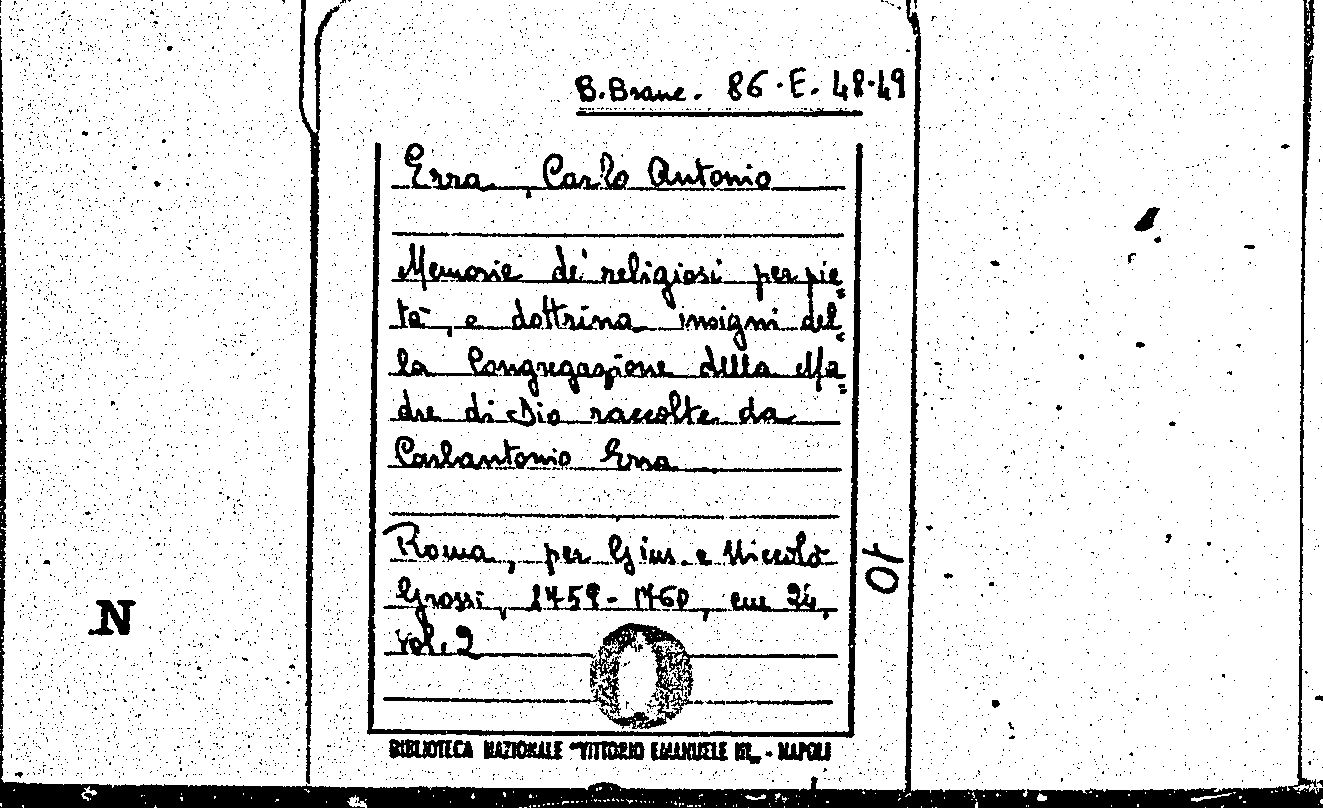 B. Branc. 86. E. 48-49
Erra, Carlo Antonio
Memorie de' religiosi per pie=
tà, e dottrina insigni del=
la Congregazione della Ma=
dre di Dio raccolte da
Carlantonio Erra
Roma, per Gius. e Niccolò
Grossi, 1759-1760, cm 24,
vol. 2
BIBLIOTECA NAZIONALE "VITTORIO EMANUELE III" - NAPOLI
10
N